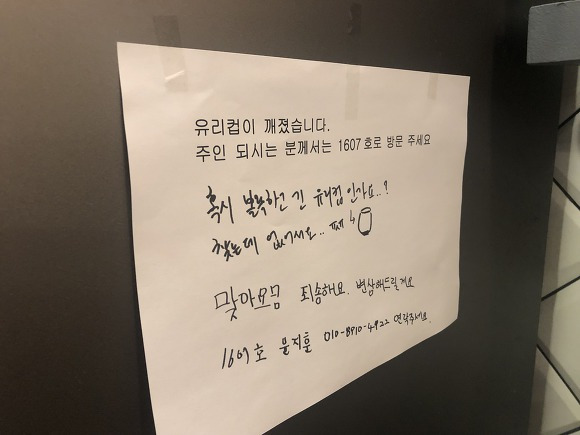 유리컵이 깨졌습니다.
주인 되시는 분께서는 1607호로 방문 주세요
혹시 볼록하고 긴 유리컵 인가요..?
찾는데 없어서요..
맞아요 죄송해요. 변상해드릴게요
1607호 문지훈 010-8910-4922 연락주세요.